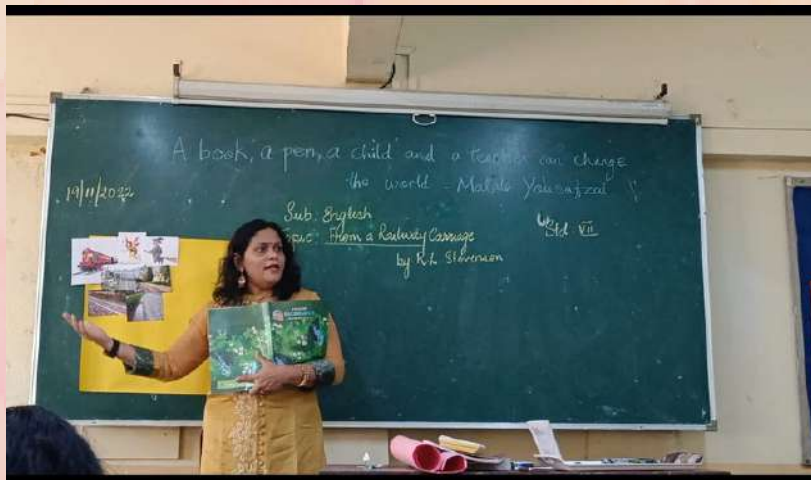 A book, a pen, a child and a teacher can change
the world - Malala Yousafzai
19/11/2022
Sub: English
Topic: From a Railway Carriage
by R L Stevenson
Std VII